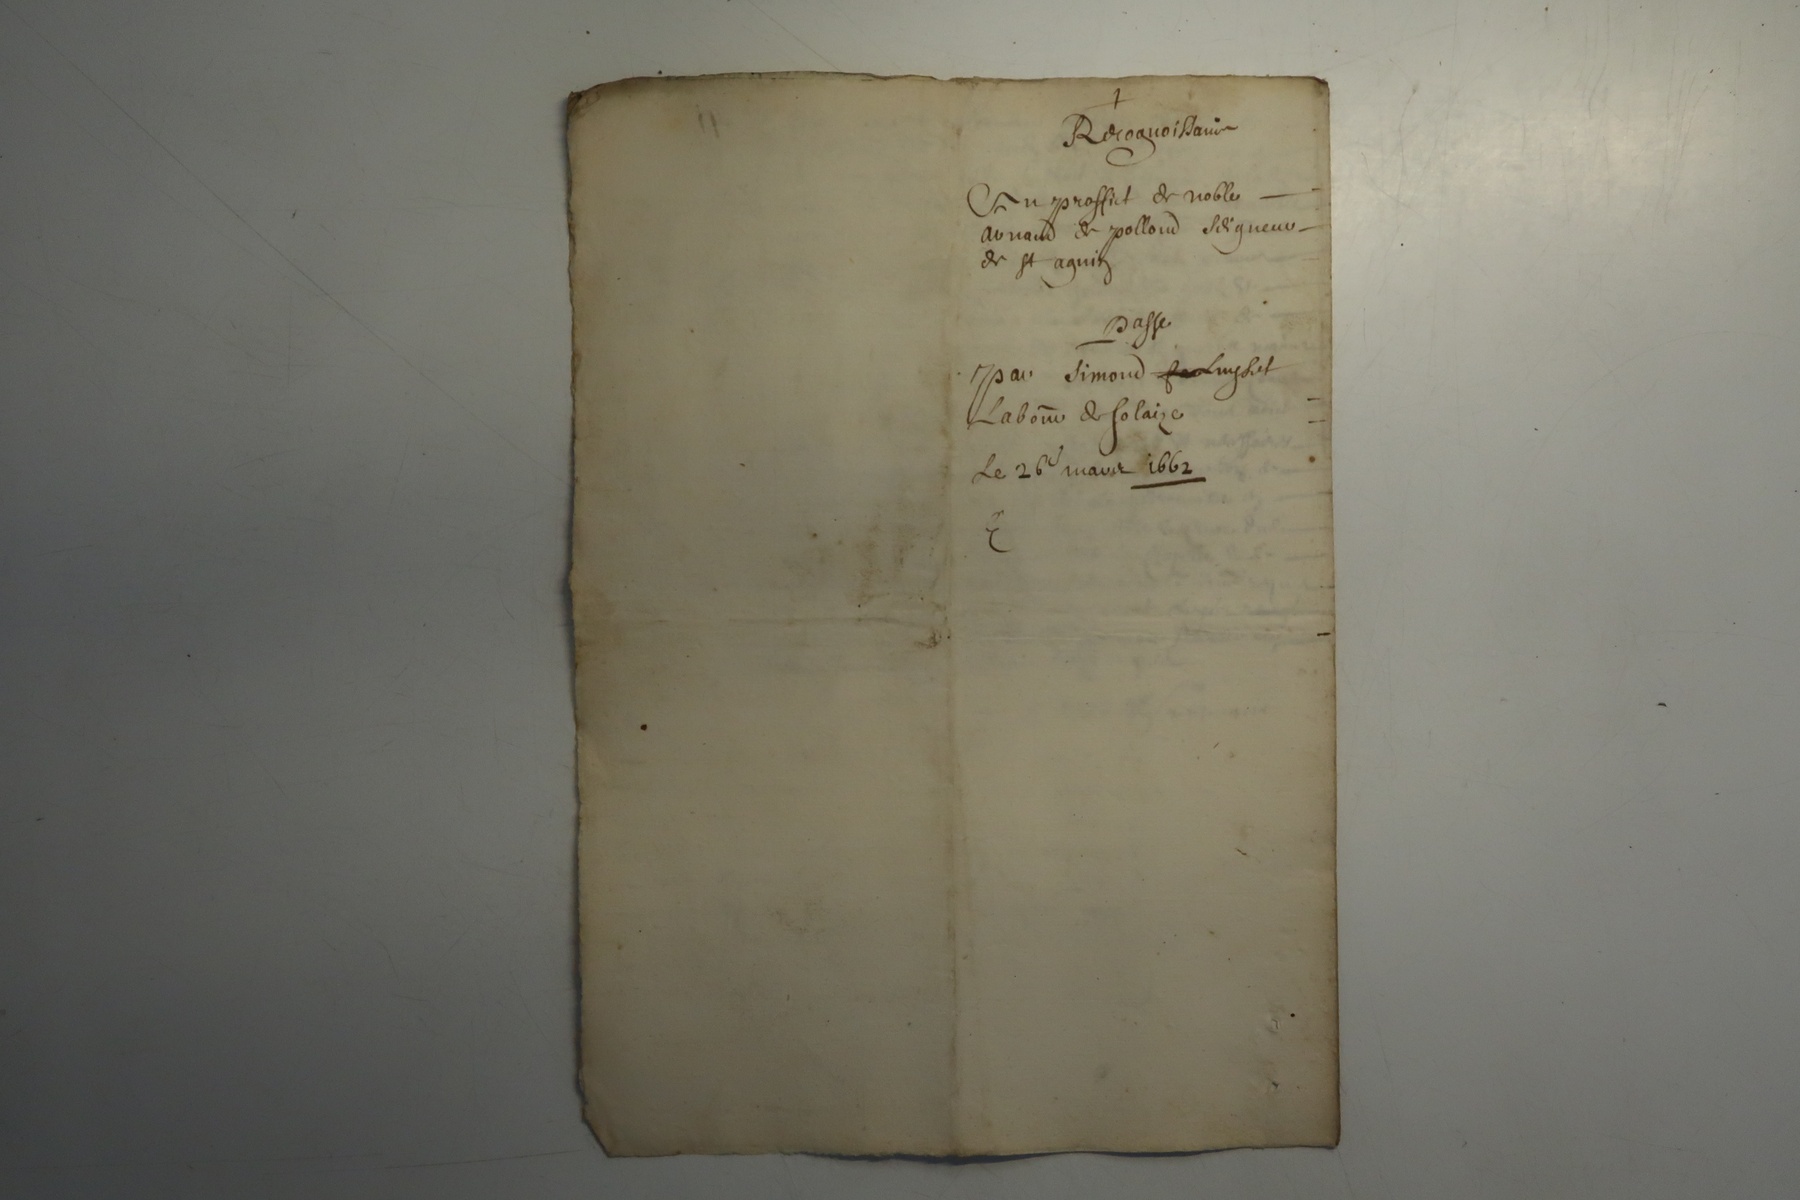 Recognoissance
Au proffict de noble
Arnaud de polloud Seigneur
de st agnin
Passe
par Simond
Labour de solaize
Le 26e mars 1662